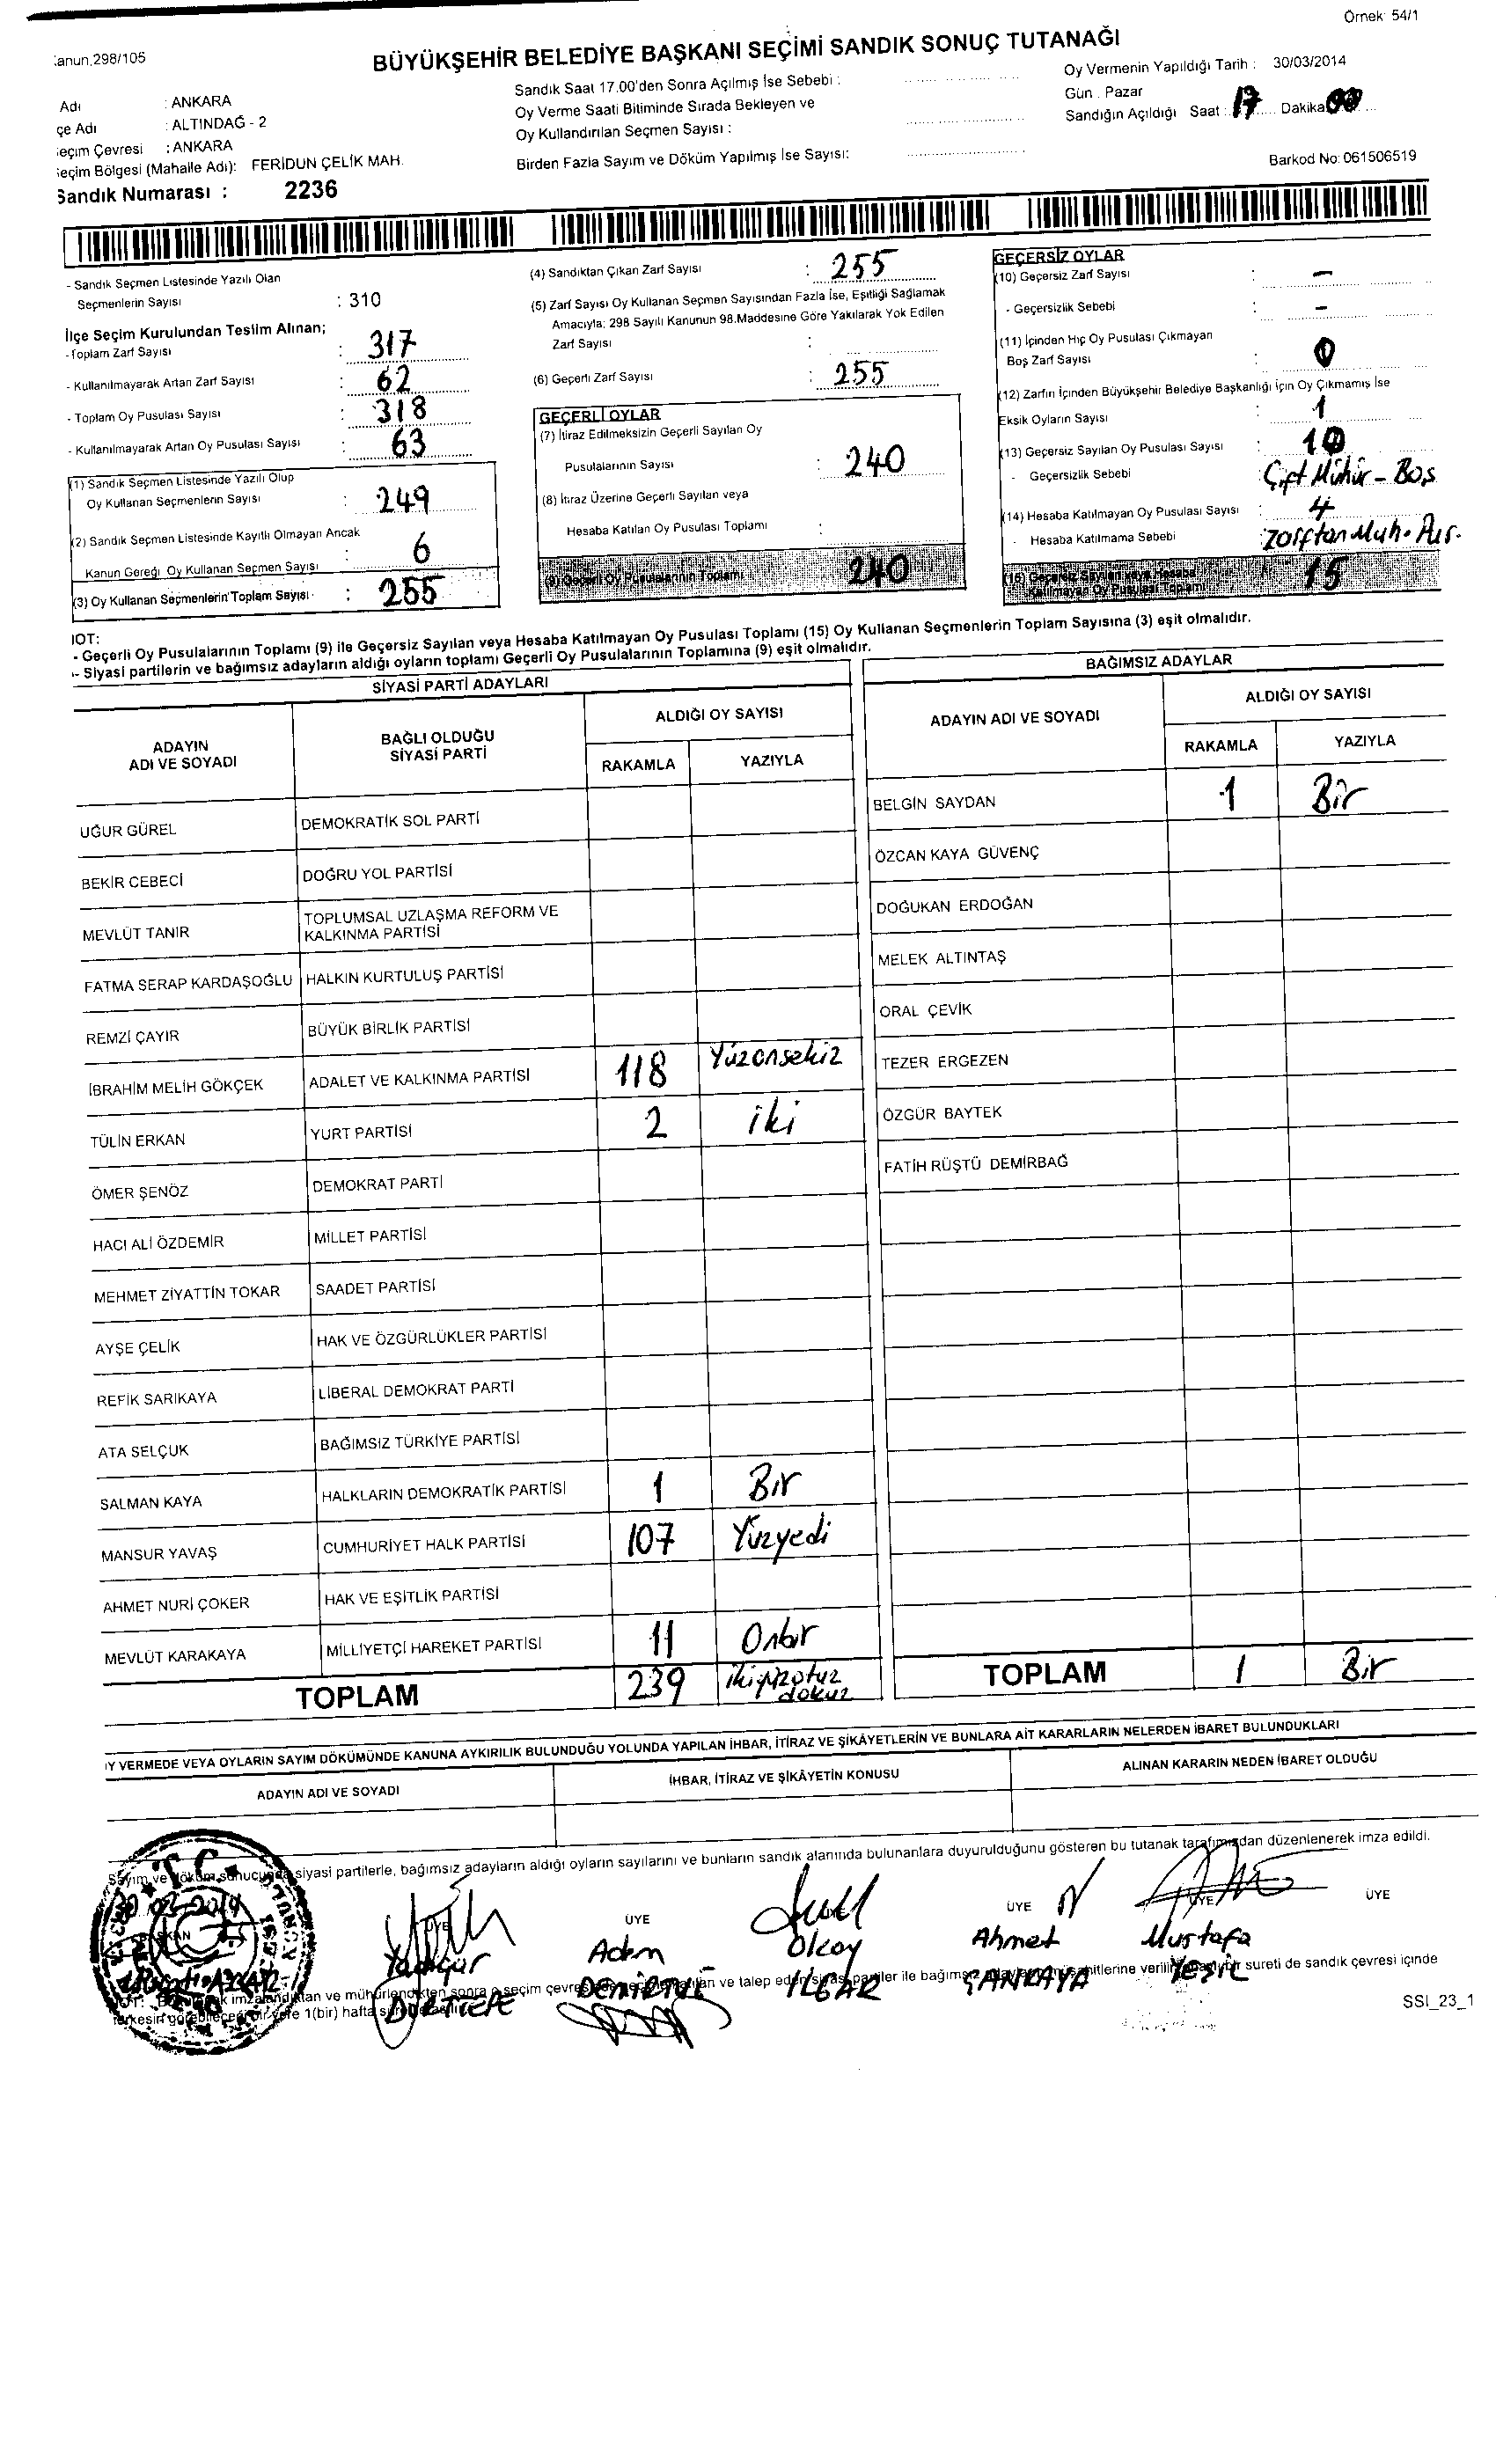 Örnek: 54/1
anun.298/105
BÜYÜKŞEHİR BELEDİYE BAŞKANI SEÇİMİ SANDIK SONUÇ TUTANAĞI
Adı : ANKARA
çe Adı : ALTINDAĞ - 2
eçim Çevresi : ANKARA
eçim Bölgesi (Mahalle Adı): FERİDUN ÇELİK MAH.
Sandık Numarası : 2236
Sandık Saat 17.00'den Sonra Açılmış İse Sebebi :
Oy Verme Saati Bitiminde Sırada Bekleyen ve
Oy Kullandırılan Seçmen Sayısı :
Birden Fazla Sayım ve Döküm Yapılmış İse Sayısı:
Oy Vermenin Yapıldığı Tarih : 30/03/2014
Gün : Pazar
Sandığın Açıldığı Saat : 17 Dakika 00
Barkod No: 061506519
- Sandık Seçmen Listesinde Yazılı Olan
Seçmenlerin Sayısı : 310
İlçe Seçim Kurulundan Teslim Alınan;
-Toplam Zarf Sayısı : 317
- Kullanılmayarak Artan Zarf Sayısı : 62
- Toplam Oy Pusulası Sayısı : 318
- Kullanılmayarak Artan Oy Pusulası Sayısı : 63
(1) Sandık Seçmen Listesinde Yazılı Olup
Oy Kullanan Seçmenlerin Sayısı : 249
(2) Sandık Seçmen Listesinde Kayıtlı Olmayan Ancak
Kanun Gereği Oy Kullanan Seçmen Sayısı : 6
(3) Oy Kullanan Seçmenlerin Toplam Sayısı : 255
(4) Sandıktan Çıkan Zarf Sayısı : 255
(5) Zarf Sayısı Oy Kullanan Seçmen Sayısından Fazla İse, Eşitliği Sağlamak
Amacıyla; 298 Sayılı Kanunun 98.Maddesine Göre Yakılarak Yok Edilen
Zarf Sayısı :
(6) Geçerli Zarf Sayısı : 255
GEÇERLİ OYLAR
(7) İtiraz Edilmeksizin Geçerli Sayılan Oy
Pusulalarının Sayısı : 240
(8) İtiraz Üzerine Geçerli Sayılan veya
Hesaba Katılan Oy Pusulası Toplamı :
(9) Geçerli Oy Pusulalarının Toplamı 240
GEÇERSİZ OYLAR
(10) Geçersiz Zarf Sayısı : -
- Geçersizlik Sebebi : -
(11) İçinden Hiç Oy Pusulası Çıkmayan
Boş Zarf Sayısı : 0
(12) Zarfın İçinden Büyükşehir Belediye Başkanlığı İçin Oy Çıkmamış İse
Eksik Oyların Sayısı : 1
(13) Geçersiz Sayılan Oy Pusulası Sayısı : 10
- Geçersizlik Sebebi Çift Mühür - Boş
(14) Hesaba Katılmayan Oy Pusulası Sayısı : 4
- Hesaba Katılmama Sebebi : Zarftan Muh.
(15) Geçersiz Sayılan veya Hesaba
Katılmayan Oy Pusulası Toplamı 15
IOT:
- Geçerli Oy Pusulalarının Toplamı (9) ile Geçersiz Sayılan veya Hesaba Katılmayan Oy Pusulası Toplamı (15) Oy Kullanan Seçmenlerin Toplam Sayısına (3) eşit olmalıdır.
- Siyasi partilerin ve bağımsız adayların aldığı oyların toplamı Geçerli Oy Pusulalarının Toplamına (9) eşit olmalıdır.
SİYASİ PARTİ ADAYLARI
ADAYIN ADI VE SOYADI BAĞLI OLDUĞU SİYASİ PARTİ ALDIĞI OY SAYISI
RAKAMLA YAZIYLA
UĞUR GÜREL DEMOKRATİK SOL PARTİ
BEKİR CEBECİ DOĞRU YOL PARTİSİ
MEVLÜT TANIR TOPLUMSAL UZLAŞMA REFORM VE KALKINMA PARTİSİ
FATMA SERAP KARDAŞOĞLU HALKIN KURTULUŞ PARTİSİ
REMZİ ÇAYIR BÜYÜK BİRLİK PARTİSİ
İBRAHİM MELİH GÖKÇEK ADALET VE KALKINMA PARTİSİ 118 Yüzonsekiz
TÜLİN ERKAN YURT PARTİSİ 2 iki
ÖMER ŞENÖZ DEMOKRAT PARTİ
HACI ALİ ÖZDEMİR MİLLET PARTİSİ
MEHMET ZİYATTİN TOKAR SAADET PARTİSİ
AYŞE ÇELİK HAK VE ÖZGÜRLÜKLER PARTİSİ
REFİK SARIKAYA LİBERAL DEMOKRAT PARTİ
ATA SELÇUK BAĞIMSIZ TÜRKİYE PARTİSİ
SALMAN KAYA HALKLARIN DEMOKRATİK PARTİSİ 1 Bir
MANSUR YAVAŞ CUMHURİYET HALK PARTİSİ 107 Yüzyedi
AHMET NURİ ÇOKER HAK VE EŞİTLİK PARTİSİ
MEVLÜT KARAKAYA MİLLİYETÇİ HAREKET PARTİSİ 11 Onbir
TOPLAM 239 ikiyüzotuz dokuz
BAĞIMSIZ ADAYLAR
ADAYIN ADI VE SOYADI ALDIĞI OY SAYISI
RAKAMLA YAZIYLA
BELGİN SAYDAN 1 Bir
ÖZCAN KAYA GÜVENÇ
DOĞUKAN ERDOĞAN
MELEK ALTINTAŞ
ORAL ÇEVİK
TEZER ERGEZEN
ÖZGÜR BAYTEK
FATİH RÜŞTÜ DEMİRBAĞ
TOPLAM 1 Bir
Y VERMEDE VEYA OYLARIN SAYIM DÖKÜMÜNDE KANUNA AYKIRILIK BULUNDUĞU YOLUNDA YAPILAN İHBAR, İTİRAZ VE ŞİKÂYETLERİN VE BUNLARA AİT KARARLARIN NELERDEN İBARET BULUNDUKLARI
ADAYIN ADI VE SOYADI İHBAR, İTİRAZ VE ŞİKÂYETİN KONUSU ALINAN KARARIN NEDEN İBARET OLDUĞU
Sayım ve döküm sonucunda siyasi partilerle, bağımsız adayların aldığı oyların sayılarını ve bunların sandık alanında bulunanlara duyurulduğunu gösteren bu tutanak tarafımızdan düzenlenerek imza edildi.
ÜYE ÜYE ÜYE ÜYE ÜYE
Yadigar Adem Olcay Ahmet Mustafa
DÖRTTEPE ILGAR ÇANKAYA YEŞİL
imzalandıktan ve mühürlendikten sonra o seçim çevresi ve talep eden siyasi partiler ile bağımsız verilir sureti de sandık çevresi içinde
1(bir) hafta
SSI_23_1